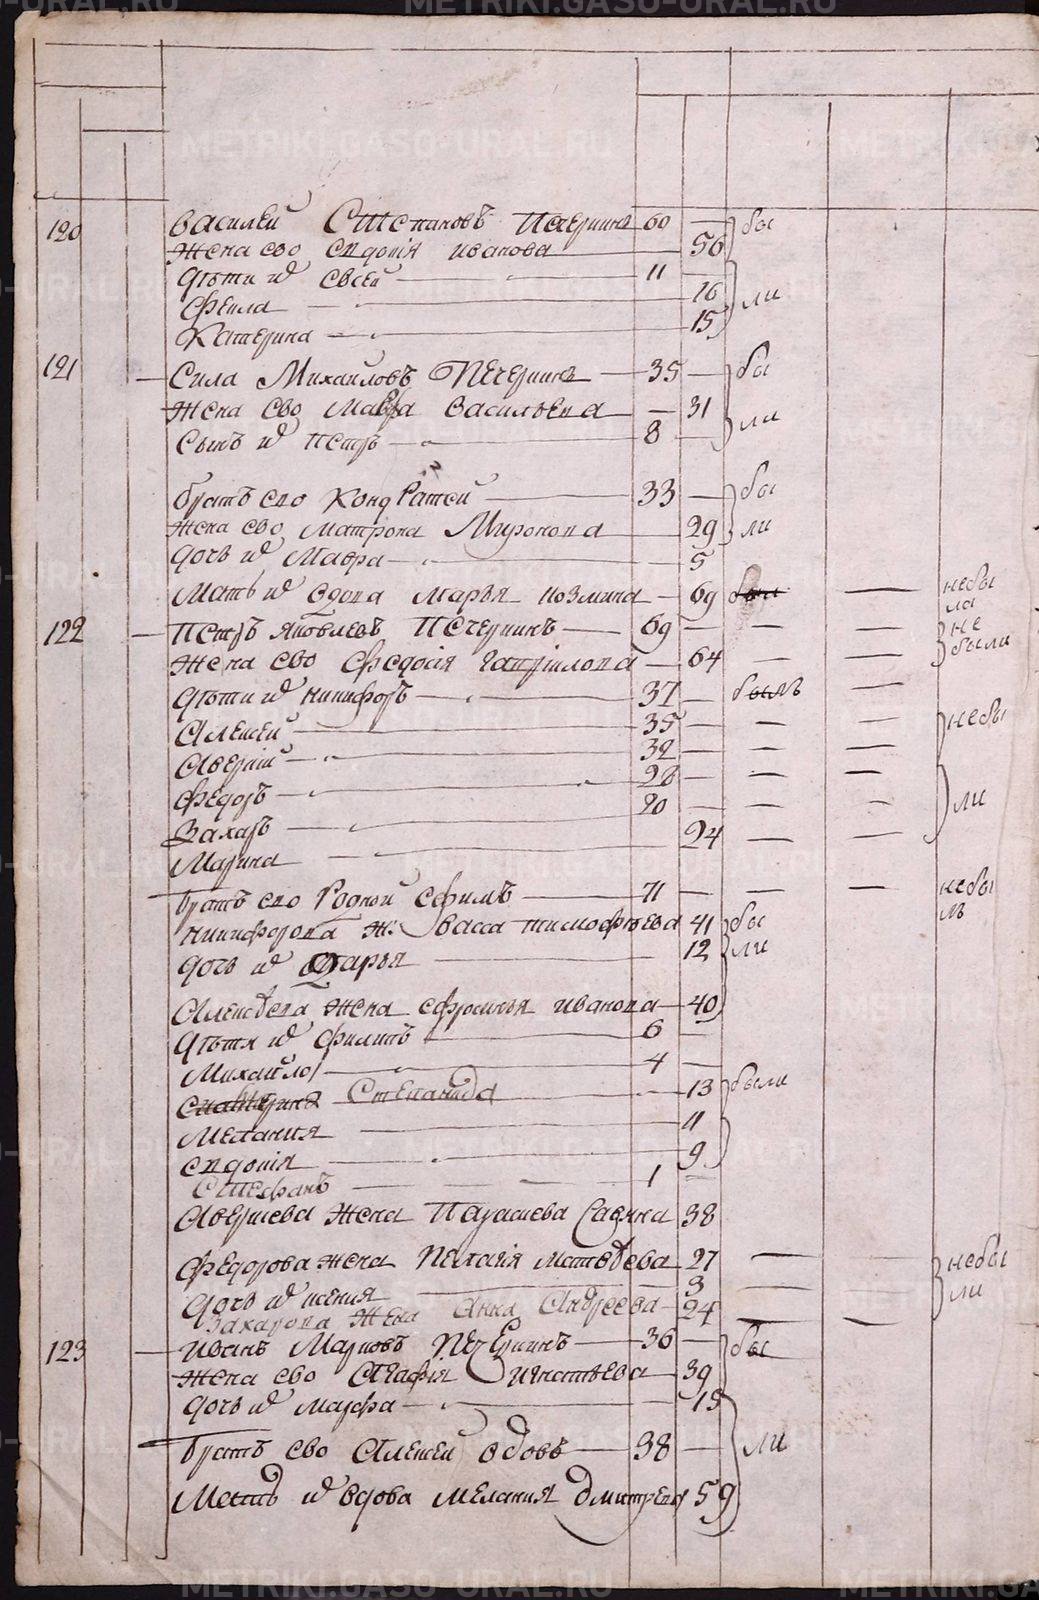 120 Василей Степановъ Печеркинъ 60 — бы
Жена ево Евдокія Иванова 56
Дѣти их Евсей — 11 —
Фекла — 16 ли
Катерина — 15
121 — Сила Михайловъ Печеркинъ — 35 — бы
Жена ево Мавра Васильева — 31
Сынъ их Петръ — 8 — ли
Братъ ево Кондратей — 33 — бы
Жена ево Матрона Миронова 29 ли
Дочь их Мавра — 5
Мать их вдова Марья Козмина — 69 — небы
ла
122 — Петръ Яковлевъ Печеркинъ — 69 — — — не
Жена ево Федосія Гаврилова — 64 — — были
Дѣти их Никифоръ — 37 — былъ —
Алексей — 35 — — — небы
Аверкій — 32 — — —
Федоръ — 28 — — —
Захаръ — 20 — — — ли
Марина — 24 — —
Братъ ево Родной Ефимъ — 71 — — — небы
лъ
Никифорова ж: Васса Тимофѣева 41 бы
Дочь их Дарья — 12 ли
Алексѣева жена Ефросинья Иванова — 40
Дѣти их Филипъ — 6 —
Михайло — 4 —
Степанида — 13 были
Мелания — 11
Евдокія — 9
Стефанъ — 1 —
Аверкиева жена Парасковья 38
Федорова жена Пелагія Матвѣева 27 —
Дочь их Ксения — 3 — небы
Захарова жена Анна Андреева — 24 — — ли
123 — Иванъ Марковъ Печеркинъ — 36 — бы
Жена ево Агафія Игнатьева — 39
Дочь их Марфа — 15
Братъ ево Алексей вдовъ — 38 — ли
Мать их вдова Мелания Дмитрева 59